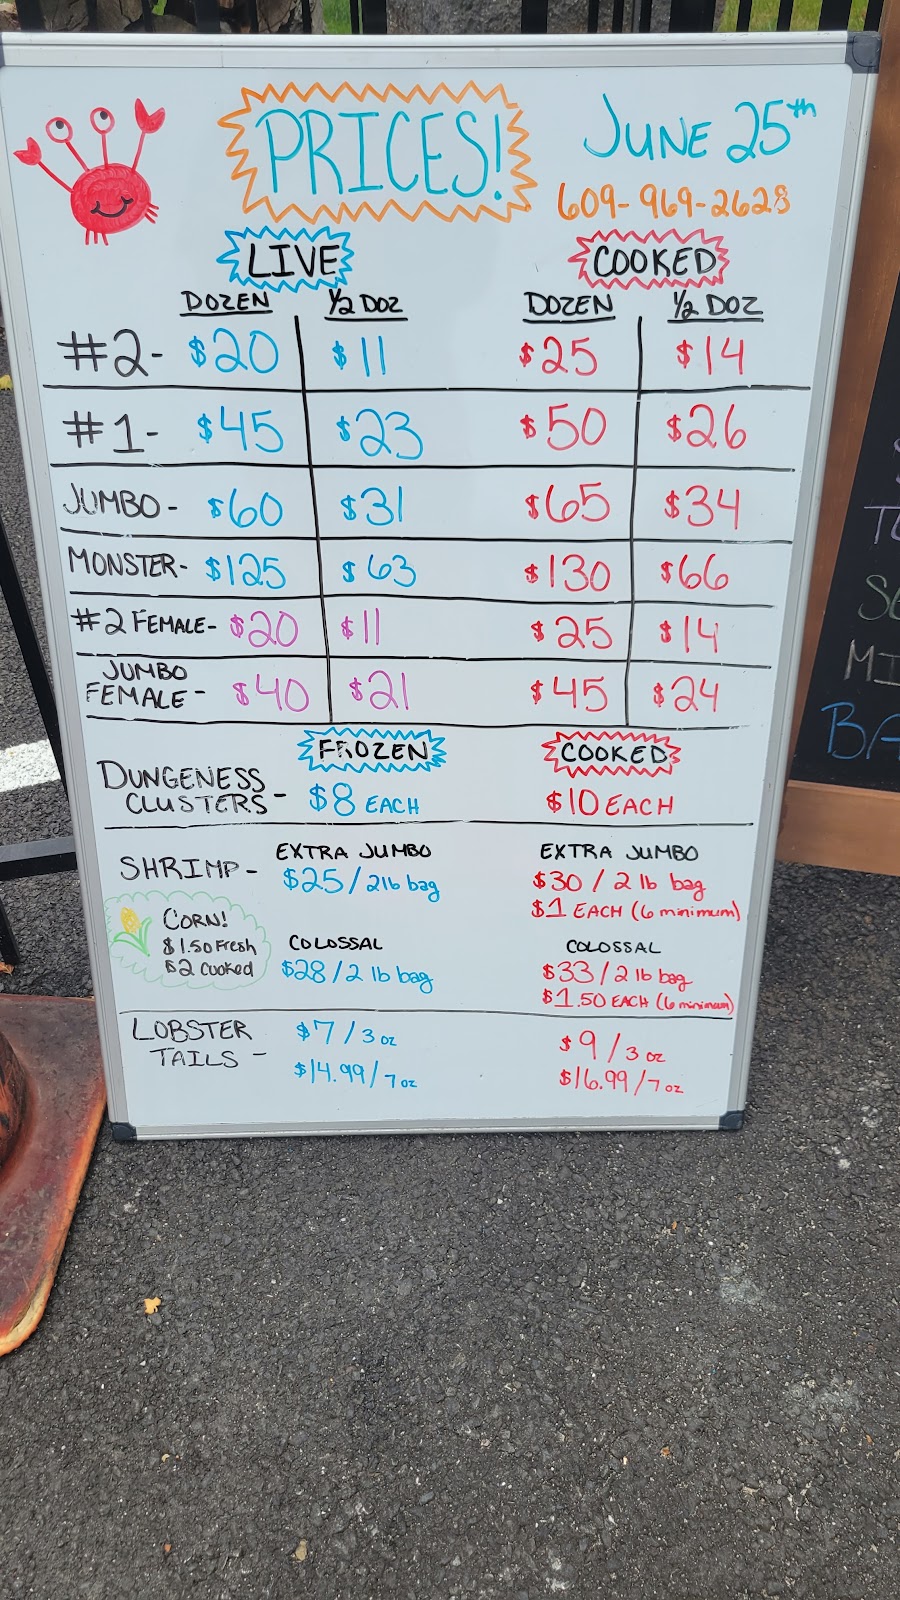 PRICES!
JUNE 25th
609-969-2628
LIVE COOKED
DOZEN ½ DOZ DOZEN ½ DOZ
#2- $20 $11 $25 $14
#1- $45 $23 $50 $26
JUMBO- $60 $31 $65 $34
MONSTER- $125 $63 $130 $66
#2 FEMALE- $20 $11 $25 $14
JUMBO
FEMALE- $40 $21 $45 $24
FROZEN COOKED
DUNGENESS
CLUSTERS- $8 EACH $10 EACH
EXTRA JUMBO EXTRA JUMBO
SHRIMP- $25/2lb bag $30/2 lb bag
$1 EACH (6 minimum)
CORN!
$1.50 Fresh
$2 Cooked
COLOSSAL COLOSSAL
$28/2 lb bag $33/2 lb bag
$1.50 EACH (6 minimum)
LOBSTER
TAILS- $7/3 oz $9/3 oz
$14.99/7 oz $16.99/7 oz